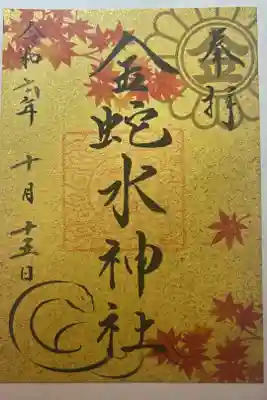 奉拝
金
金蛇水神社
令和六年 十月 十五日